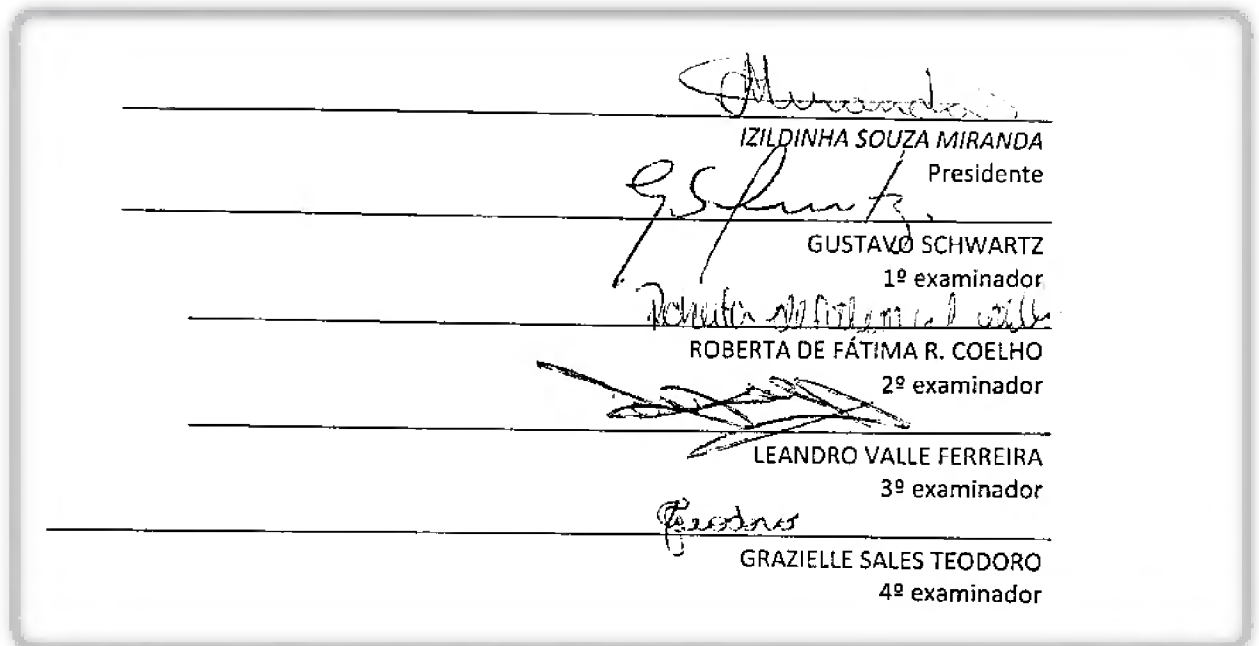 Miranda
IZILDINHA SOUZA MIRANDA
Presidente
G. Schwartz.
GUSTAVO SCHWARTZ
1º examinador
ROBERTA DE FÁTIMA R. COELHO
2º examinador
LEANDRO VALLE FERREIRA
3º examinador
Teodoro
GRAZIELLE SALES TEODORO
4º examinador